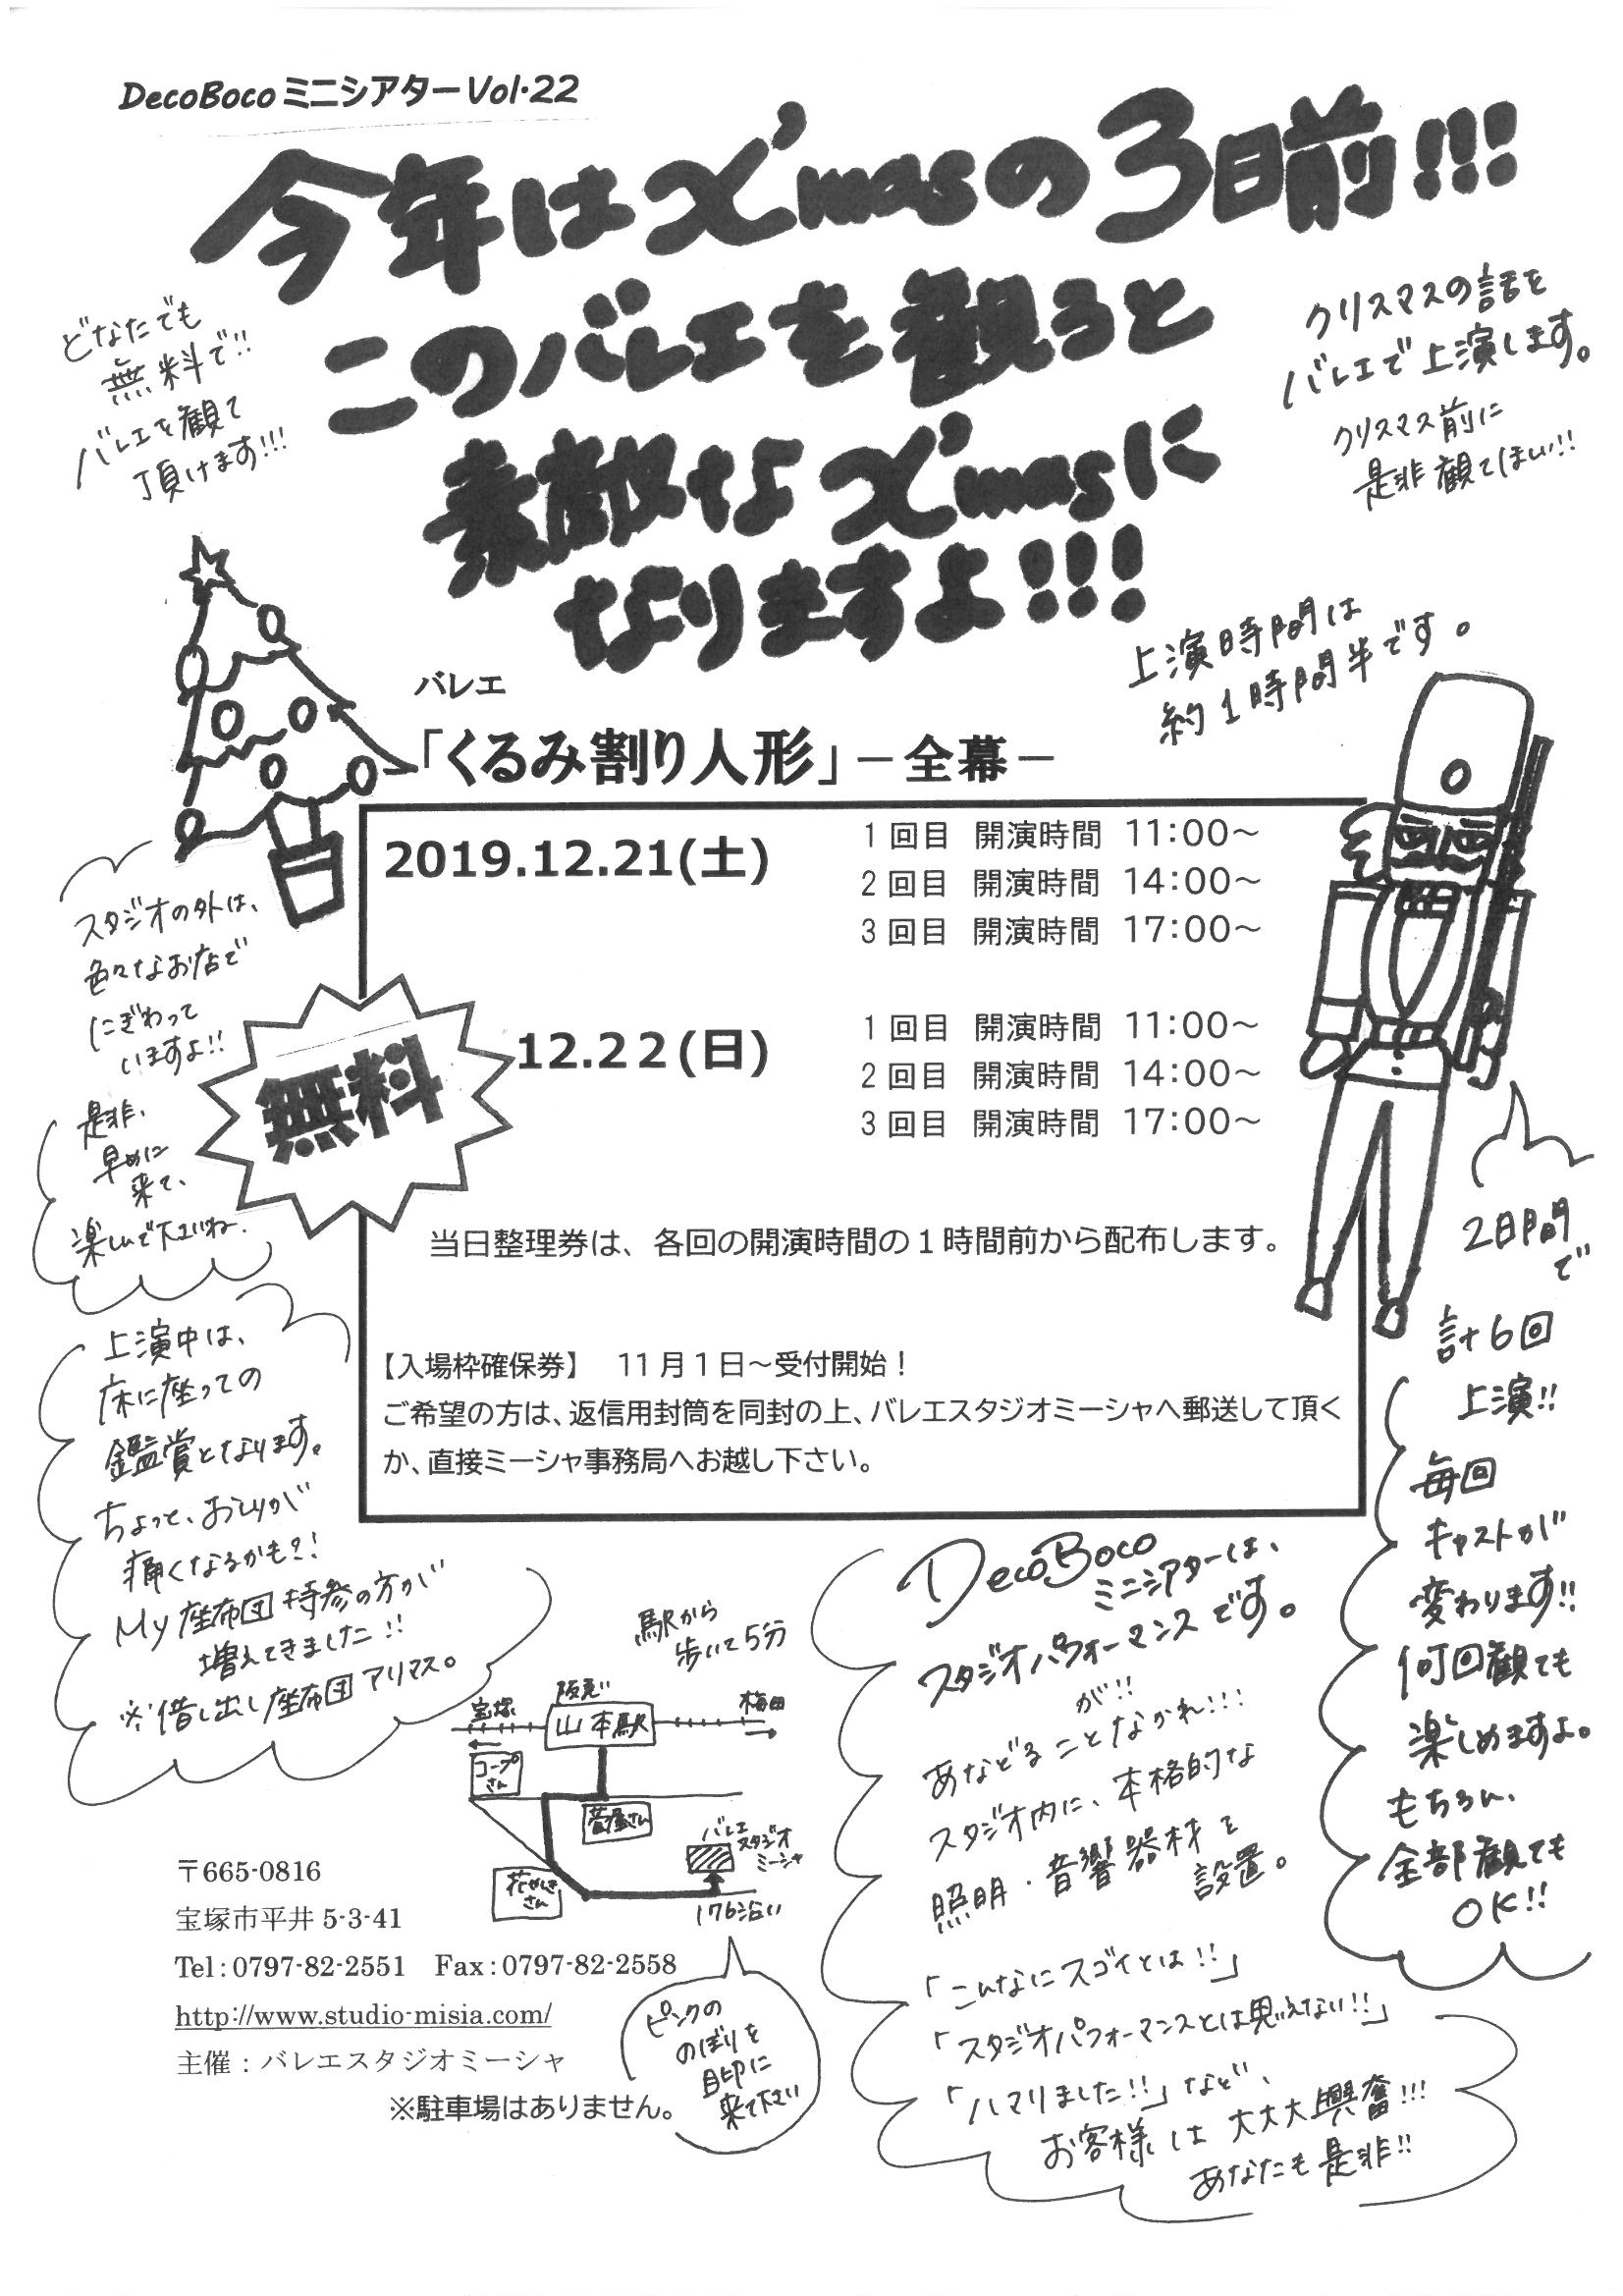 DecoBocoミニシアターVol.22
今年はX'masの3日前!!!
このバレエを観ると
素敵なX'masに
なりますよ!!!
どなたでも
無料で!!
バレエを観て
頂けます!!!
クリスマスの話を
バレエで上演します。
クリスマス前に
是非観てほしい!!
上演時間は
約1時間半です。
バレエ
「くるみ割り人形」－全幕－
2019.12.21(土)
1回目 開演時間 11:00～
2回目 開演時間 14:00～
3回目 開演時間 17:00～
12.22(日)
1回目 開演時間 11:00～
2回目 開演時間 14:00～
3回目 開演時間 17:00～
無料
当日整理券は、各回の開演時間の1時間前から配布します。
【入場枠確保券】 11月1日～受付開始！
ご希望の方は、返信用封筒を同封の上、バレエスタジオミーシャへ郵送して頂く
か、直接ミーシャ事務局へお越し下さい。
スタジオの外は、
色々なお店で
にぎわって
いますよ!!
是非、
早めに
来て、
楽しんで下さいね。
上演中は、
床に座っての
鑑賞となります。
ちょっと、おしりが
痛くなるかも?!
My座布団持参の方が
増えてきました!!
※借し出し座布団アリマス。
2日間
で
計6回
上演!!
毎回
キャストが
変わります!!
何回観ても
楽しめますよ。
もちろん、
全部観ても
OK!!
DecoBoco
ミニシアターは、
スタジオパフォーマンスです。
が!!
あなどることなかれ!!!
スタジオ内に、本格的な
照明・音響器材を
設置。
「こんなにスゴイとは!!」
「スタジオパフォーマンスとは思えない!!」
「ハマりました!!」など、
お客様は大大大興奮!!!
あなたも是非!!
駅から
歩いて5分
宝塚
阪急
山本駅
梅田
コープ
さん
菅屋さん
バレエ
スタジオ
ミーシャ
花やしき
さん
176沿い
ピンクの
のぼりを
目印に
来て下さい
〒665-0816
宝塚市平井 5-3-41
Tel:0797-82-2551 Fax:0797-82-2558
http://www.studio-misia.com/
主催：バレエスタジオミーシャ
※駐車場はありません。